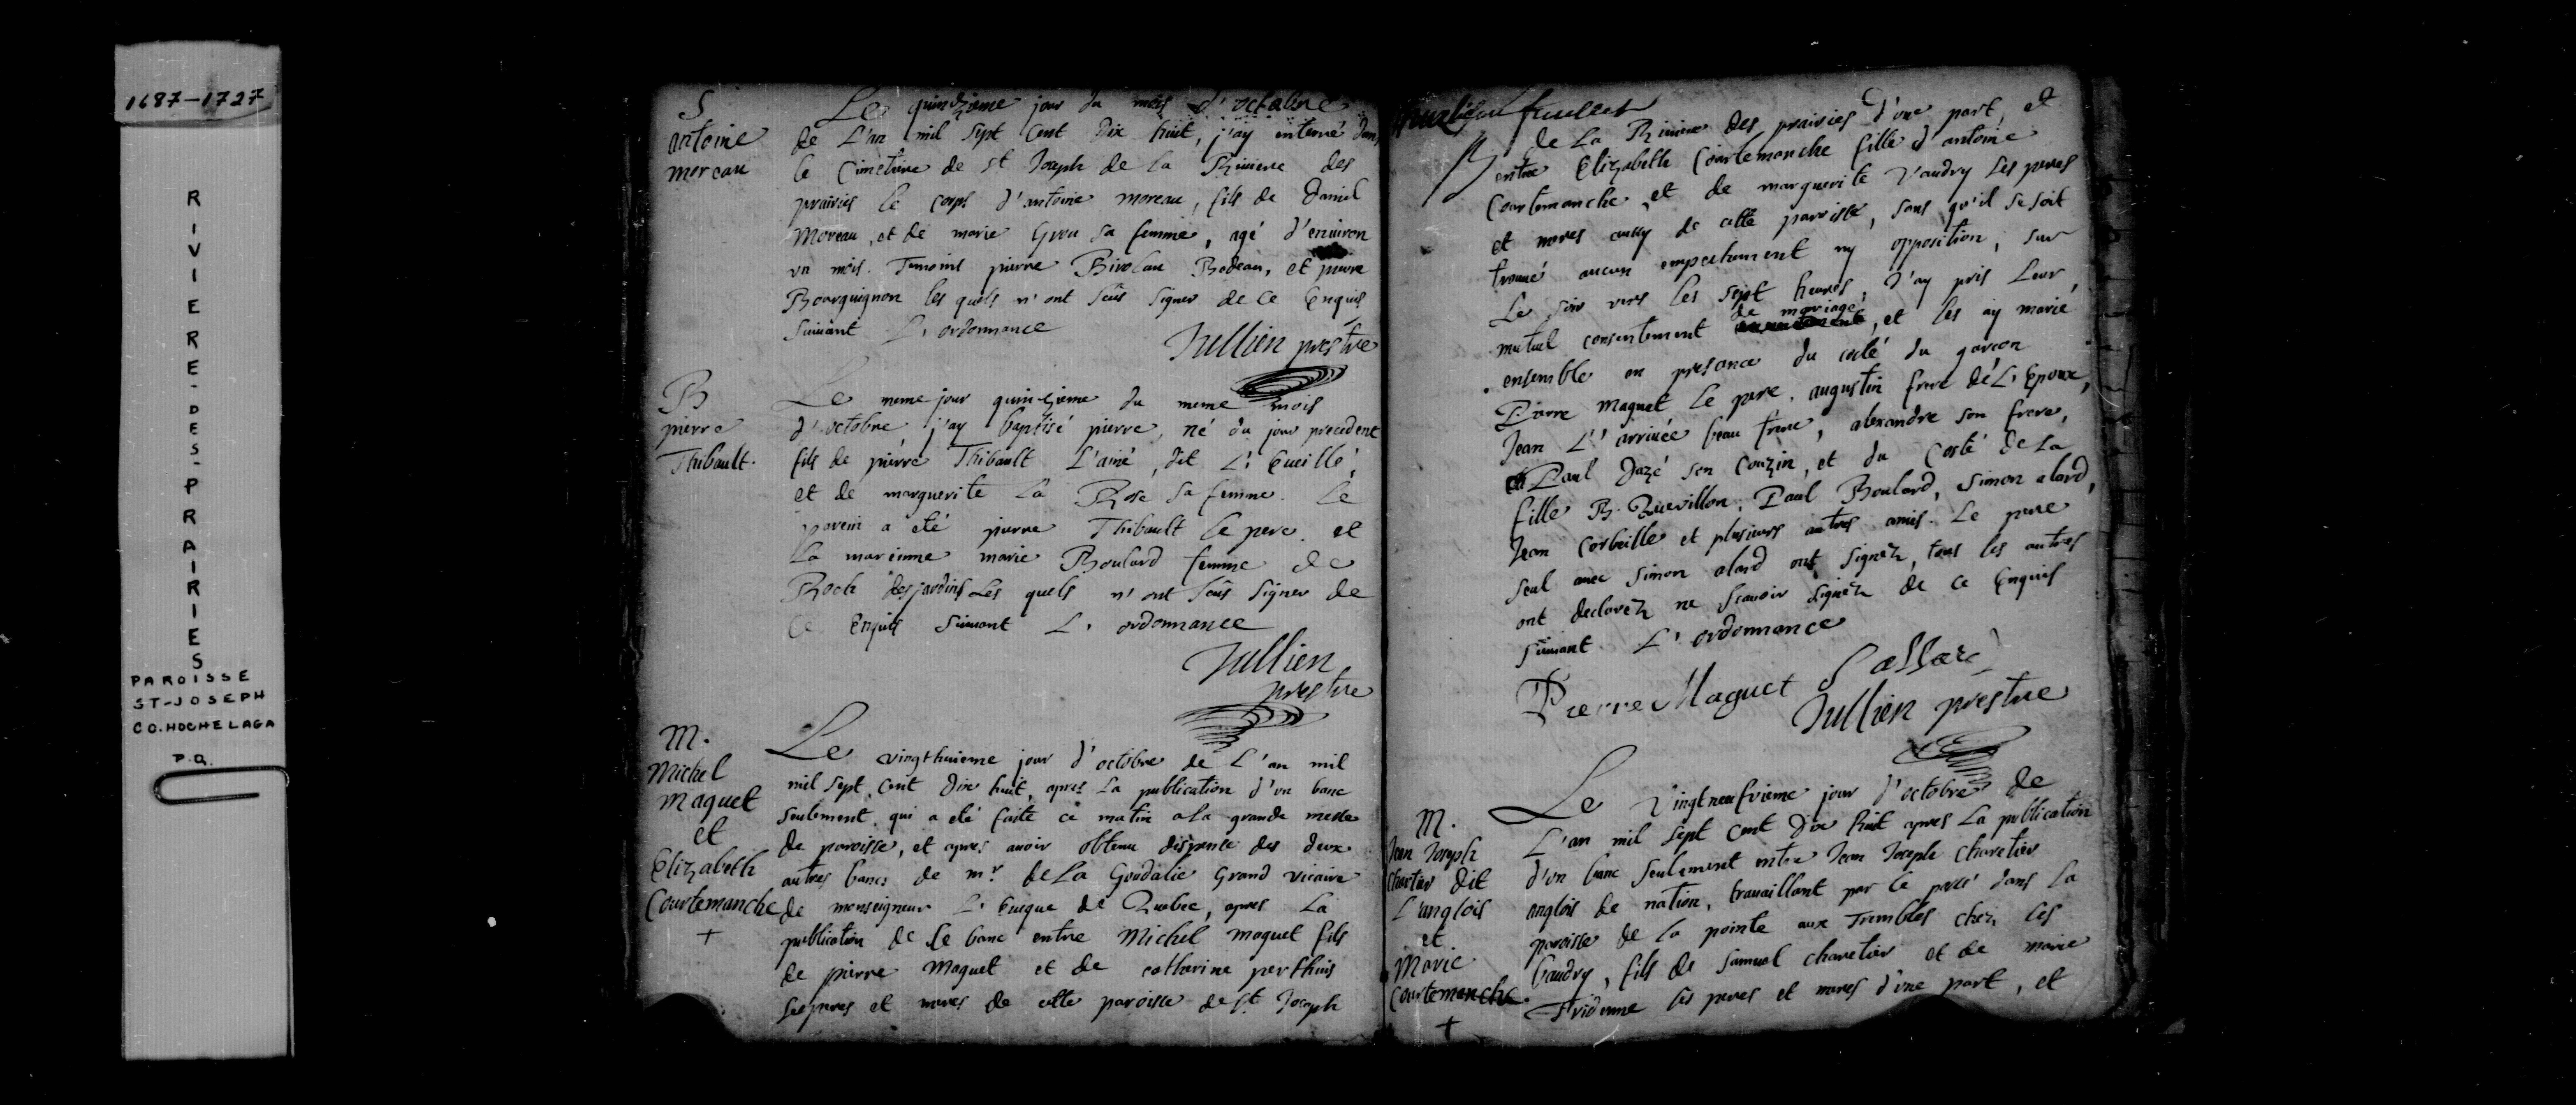 1687-1727
RIVIERE-DES-PRAIRIES
PAROISSE
ST-JOSEPH
CO. HOCHELAGA
P.Q.
S
antoine
moreau
Le quinzieme jour du mois d'octobre
de L'an mil sept cent dix huit, j'ay enterré dans
le Cimetiere de st Joseph de la Riviere des
prairies le corps d'antoine moreau, fils de Daniel
Moreau, et de marie Grou sa femme, agé d'environ
un mois. Temoins pierre Birolau Bodeau, et pierre
Bourguignon les quels n'ont sçus signer de ce Enquis
suivant L'ordonnance
Jullien prestre
B
pierre
Thibault.
Le meme jour quinzieme du meme mois
d'octobre j'ay baptisé pierre, né du jour precedent
fils de pierre Thibault L'ainé, dit L'Eveillé,
et de marguerite La Rose sa femme. Le
parein a eté pierre Thibault le pere. et
La mareinne marie Boulard femme de
Roch desjardins Les quels n'ont sçus signer de
ce Enquis suivant L'ordonnance
Jullien
prestre
M.
Michel
Maquet
et
Elizabeth
Courtemanche
+
Le vingthuieme jour d'octobre de L'an mil
mil sept cent dix huit, apres La publication d'un banc
seulement, qui a eté faite ce matin a la grande messe
de paroisse, et apres avoir obtenu dispense des deux
autres bancs de mr. de La Goudalie Grand vicaire
de monseigneur L'Eveque de Quebec, apres La
publication de Le banc entre Michel maquet fils
de pierre Maquet et de catharine perthuis
ses peres et meres de cette paroisse de St. Joseph
feuillet
de La Riviere des prairies d'une part, et
entre Elizabeth Courtemanche fille d'antoine
Courtemanche et de marguerite Vaudry ses peres
et meres aussy de cette paroisse, sans qu'il se soit
trouvé aucun empechement ny opposition, sur
Le soir vers les sept heures, J'ay pris Leur
mutuel consentement de mariage, et les ay marié
ensemble en presance du costé du garcon
Pierre Maquet Le pere, augustin frere de L'Epoux,
Jean L'arrivée beau frere, alexandre son frere,
Paul Dazé son Couzin, et du Costé de La
fille B. Quevillon, Paul Boulard, Simon alard,
Jean Corbeille et plusieurs autres amis. Le pere
seul avec Simon alard ont signez, tous les autres
ont declarez ne scavoir signez de ce Enquis
suivant L'ordonnance
Pierre Maguet S allard
Jullien prestre
M.
Jean Joseph
Chartier dit
L'anglois
et
Marie
Courtemanche.
+
Le Vingtneufvieme jour d'octobre de
L'an mil sept cent dix huit apres La publication
d'un banc seulement entre Jean Joseph Charetier
anglois de nation, travaillant par le passé dans La
paroisse de la pointe aux Trembles chez les
baudry, fils de Samuel charetier et de marie
ses peres et meres d'une part, et